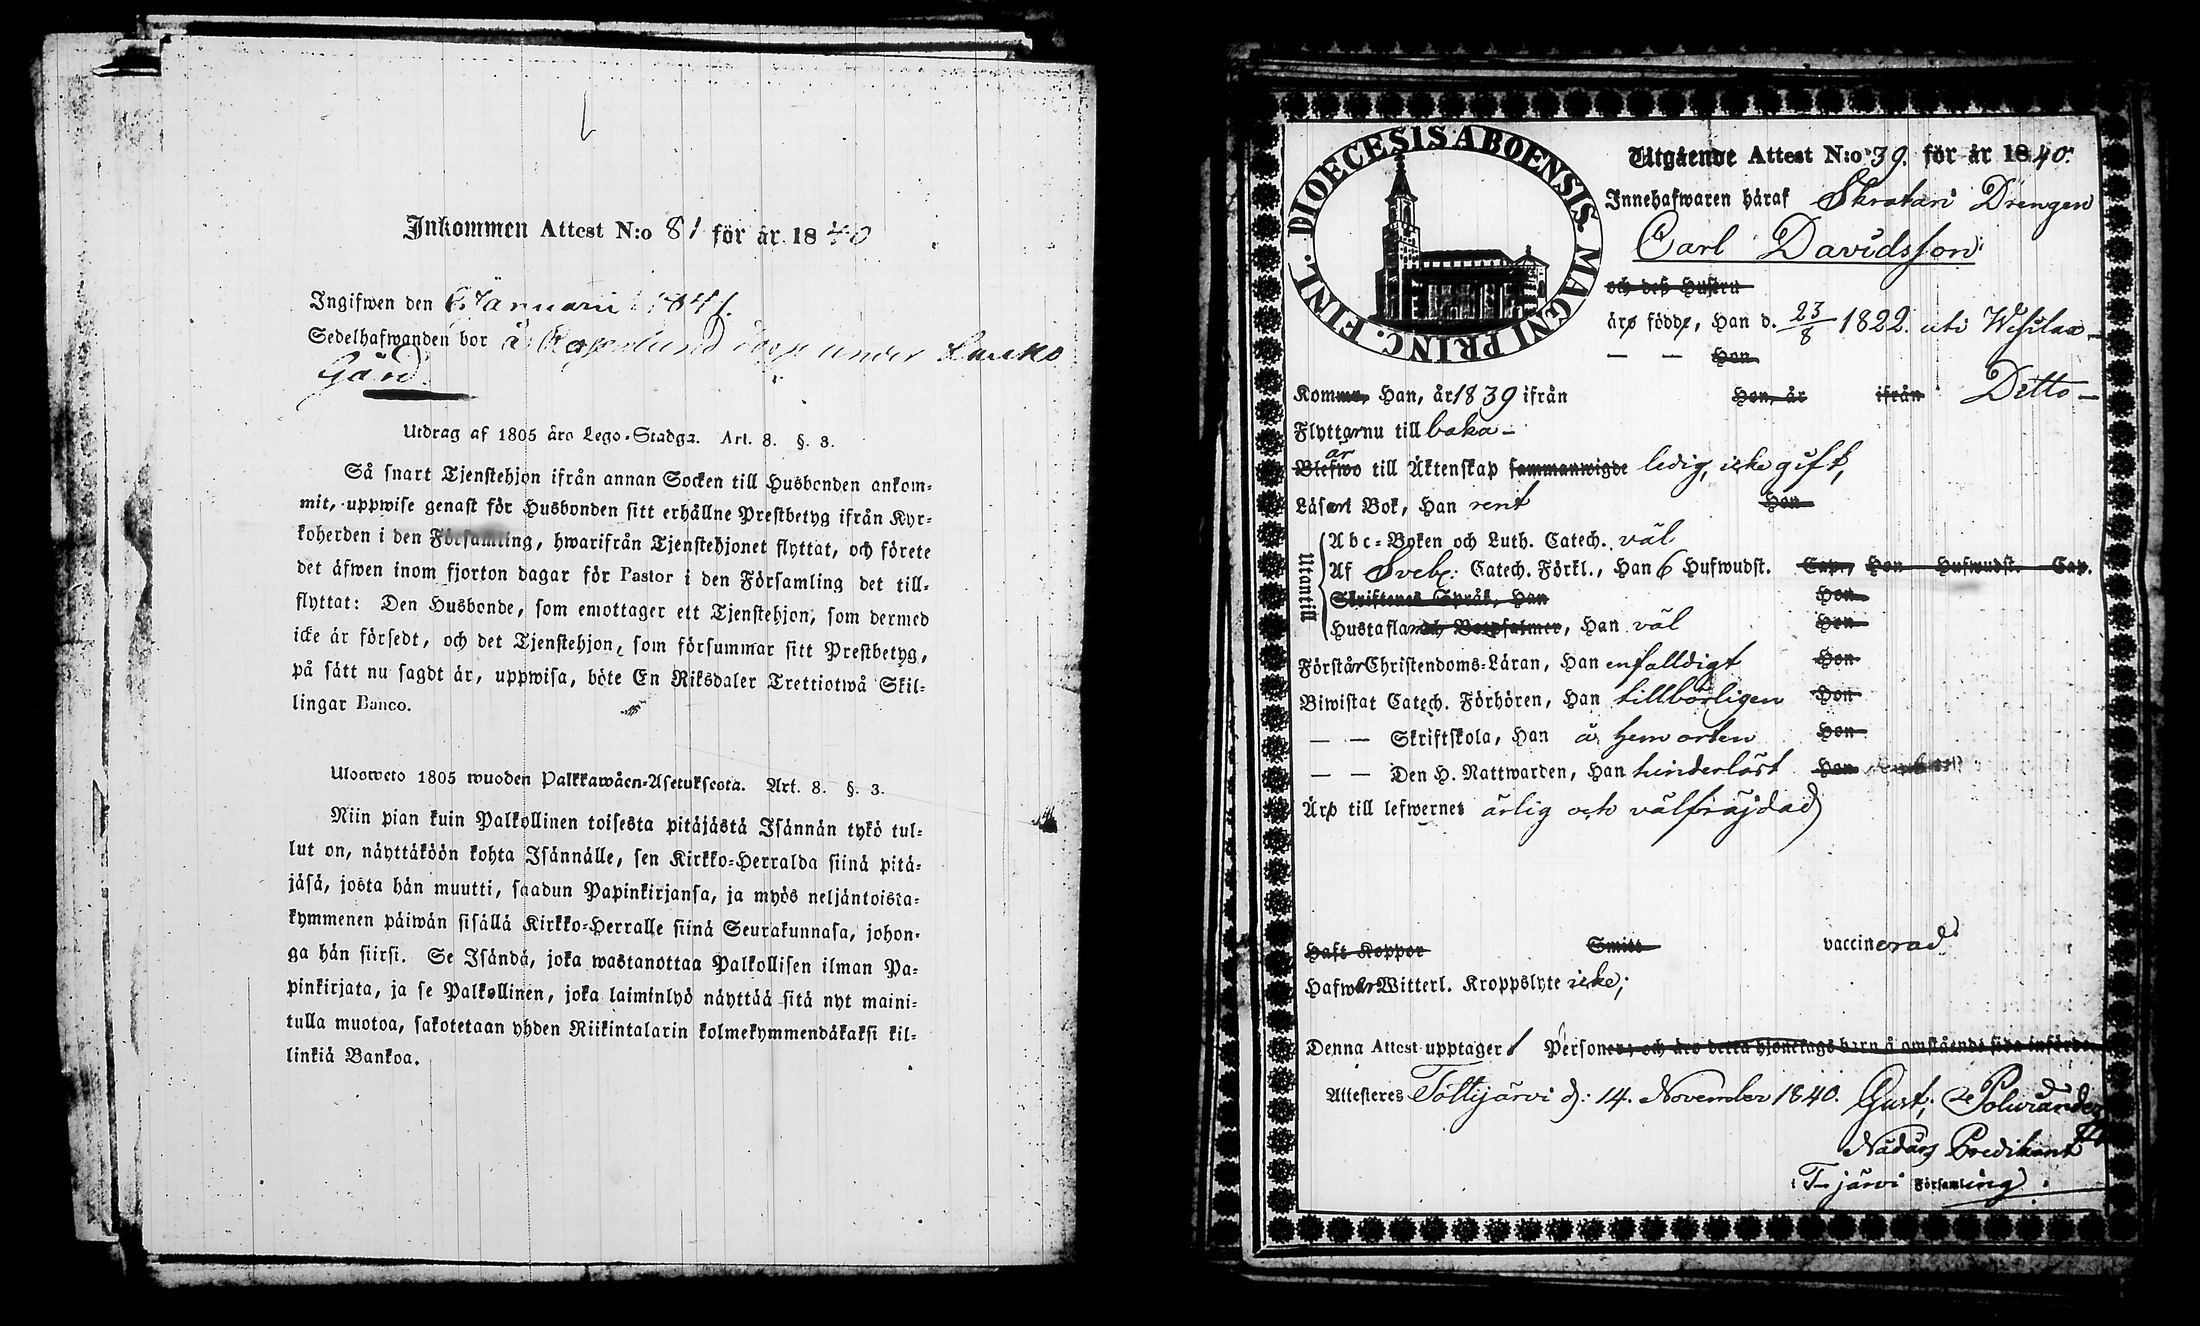 Inkommen Attest N:o 81 för år 1840
Ingifwen den 6 Januarii 1841.
Sedelhafwanden bor å under Lauko
Gård.
Utdrag af 1805 års Lego-Stadga. Art. 8. §. 3.
Så snart Tjenstehjon ifrån annan Socken till Husbonden ankom-
mit, uppwise genast för Husbonden sitt erhållne Prestbetyg ifrån Kyr-
koherden i den Församling, hwarifrån Tjenstehjonet flyttat, och förete
det äfwen inom fjorton dagar för Pastor i den Församling det till-
flyttat: Den Husbonde, som emottager ett Tjenstehjon, som dermed
icke är försedt, och det Tjenstehjon, som försummar sitt Prestbetyg,
på sätt nu sagdt är, uppwisa, böte En Riksdaler Trettiotwå Skil-
lingar Banco.
Ulosweto 1805 wuoden Palkkawäen-Asetuksesta. Art. 8. §. 3.
Niin pian kuin Palkollinen toisesta pitäjästä Isännän tykö tul-
lut on, näyttäköön kohta Isännälle, sen Kirkko-Herralda siinä pitä-
jäsä, josta hän muutti, saadun Papinkirjansa, ja myös neljäntoista-
kymmenen päiwän sisällä Kirkko-Herralle siinä Seurakunnasa, johon-
ga hän siirsi. Se Isändä, joka wastanottaa Palkollisen ilman Pa-
pinkirjata, ja se Palkollinen, joka laiminlyö näyttää sitä nyt maini-
tulla muotoa, sakotetaan yhden Riikintalarin kolmekymmendäkaksi kil-
linkiä Bankoa.
DIOECESIS ABOENSIS MAGNI PRINC. FINL.
Utgående Attest N:o 39. för år 1840.
Innehafwaren häraf Skratari Drengen
Carl Davidsson
och deß Hustru
äro födde, Han d. 23/8 1822. uti Wesilax
— — Hon
Komme, Han, år 1839 ifrån Hon, år ifrån Ditto —
Flyttar nu till baka —
Blefwo är till Äktenskap sammanwigde ledig, icke gift,
Läsart Bok, Han rent Hon
Utantill
Abc-Boken och Luth. Catech. väl
Af Sveb: Catech. Förkl., Han 6 Hufwudst. Cap., Hon Hufwudst. Cap.
Skriftenes Språk, Han Hon
Hustaflan och Botpsalmer, Han väl Hon
Förstår Christendoms-Läran, Han enfalldigt Hon
Biwistat Catech. Förhören, Han tillbörligen Hon
— — Skriftskola, Han å hemorten Hon
— — Den H. Nattwarden, Han hinderlöst Hon
Äro till lefwernet ärlig och välfräjdad
Haft Koppor Smitt vaccinerad
Hafwer Witterl. Kroppslyte icke;
Denna Attest upptager 1 Personer, och äro detta hjonelags barn å omstående sida införde.
Attesteres Tottijärvi d: 14. November 1840. Gust.
Nådårs Predikant
i T-järvi Församling.